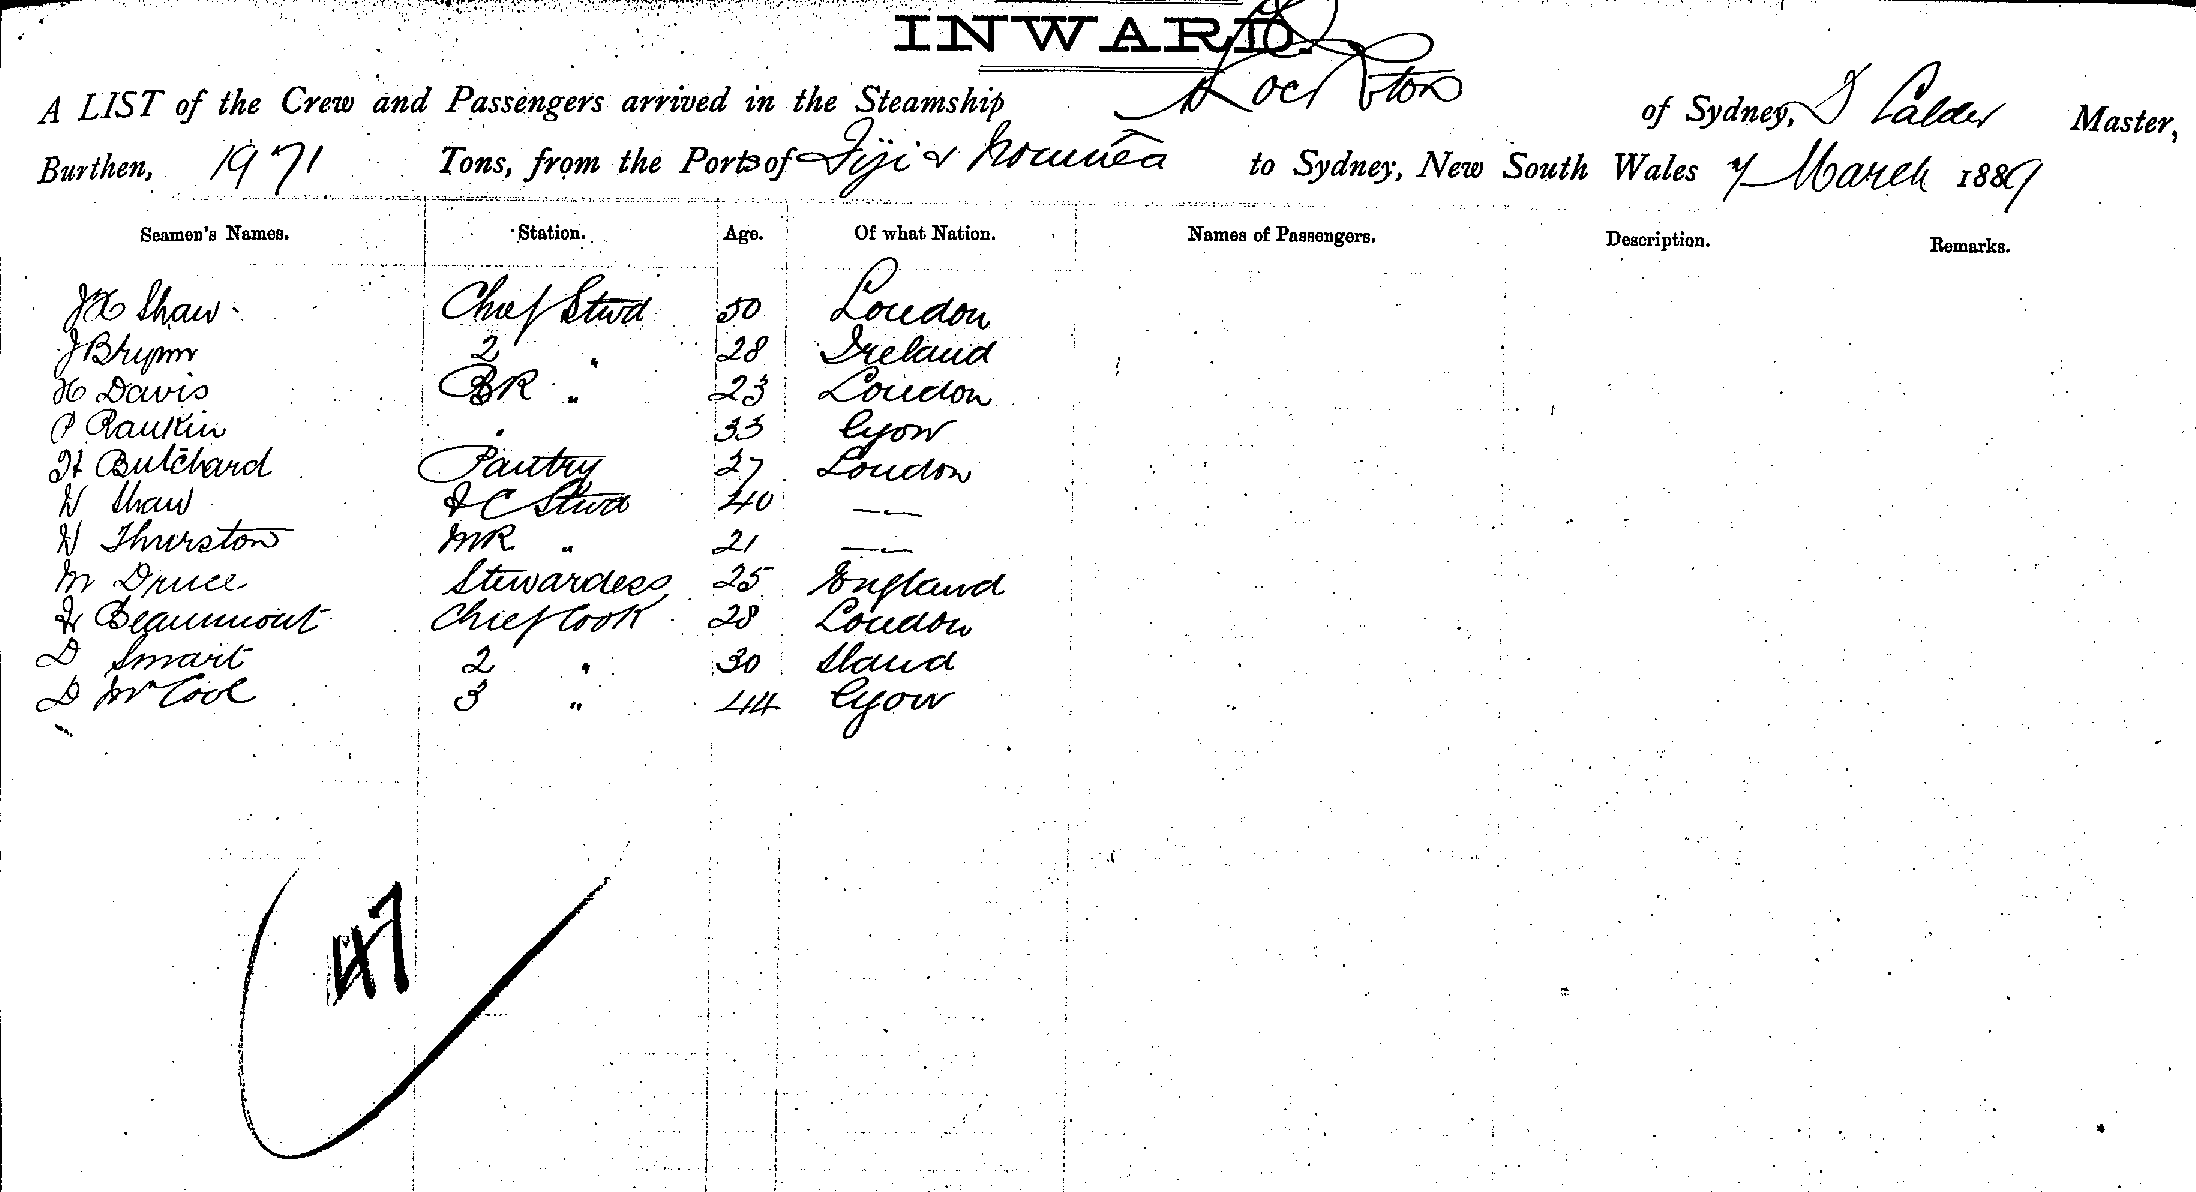 INWARD.
A LIST of the Crew and Passengers arrived in the Steamship Rockton of Sydney, T Calder Master,
Burthen, 1971 Tons, from the Ports of Fiji & Noumea to Sydney, New South Wales 7 March 1889
Seamen's Names. Station. Age. Of what Nation. Names of Passengers. Description. Remarks.
J H Shaw Chief Stwd 50 London
J 2 " 28 Ireland
H Davis BR " 23 London
P Rankin " 33 Glgow
H Butchard Pantry 27 London
W Shaw F C Stwd 40 —„—
W Thurston MR " 21 —„—
M Druce Stewardess 25 England
H Beaumont Chief Cook 28 London
D Smart 2 " 30 Sland
D McCool 3 " 44 Glgow
47